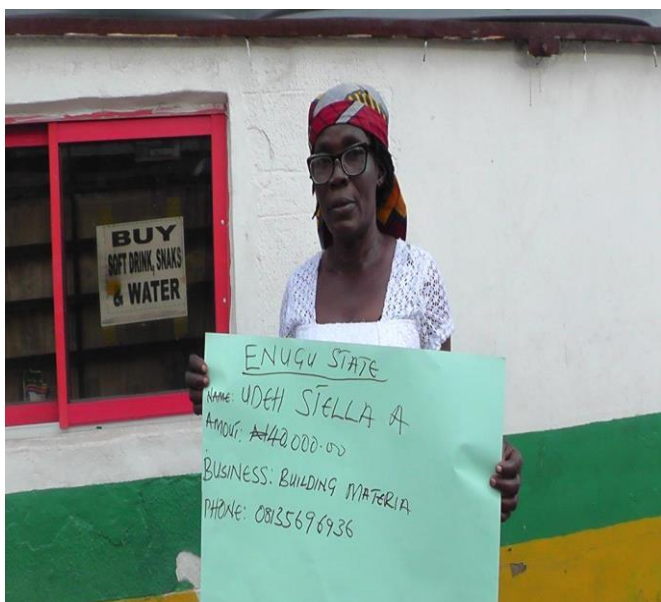 BUY
SOFT DRINK, SNAKS
& WATER
ENUGU STATE
NAME: UDEH STELLA A
AMOUT: ₦140,000.00
BUSINESS: BUILDING MATERIA
PHONE: 08135696936